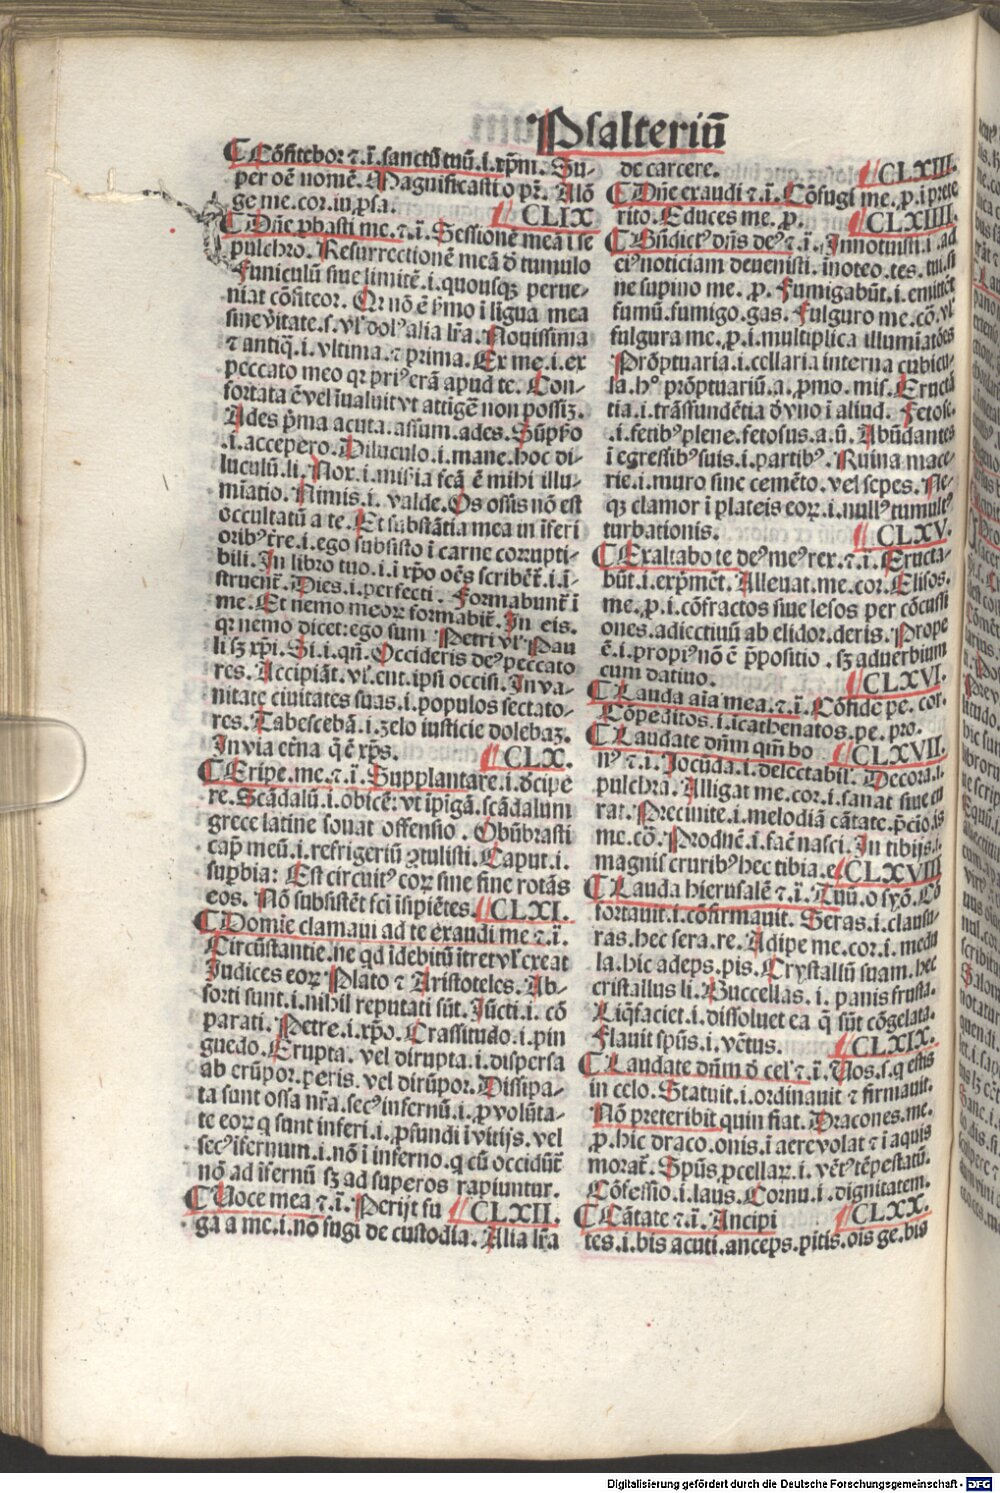 Psalteriū
¶ Cōfitebor ⁊.ī.sanctū tuū.i.xp̄m. Su-
per oē nomē. Magnificasti o pr̄. Alō
ge me.cor.iu ꝓsa. CLIX
¶ Dn̄e ꝓbasti me.⁊.ī. Sessionē meā i se
pulchro. Resurrectionē meā d̄ tumulo
Funiculū siue limitē.i.quousqꝫ perue-
niat cōfiteor. Qꝛ nō ē ẜmo ī ligua mea
sine v̓itate.s.vl̓ dolꝰ alia lr̄a. Nouissima
⁊ antiq̄.i.vltima.⁊ prima. Ex me.i.ex
peccato meo qꝛ priꝰ erā apud te. Con-
fortata ē vel īualuit vt attigē non possiꝫ.
Ades p̄ma acuta.assum.ades. Sūpẜo
.i.accepero. Diluculo.i.mane.hoc di-
luculū.li. Nox.i.mis̓ia fcā ē mihi illu-
mīatio. Nimis.i. valde. Os ossis nō est
occultatū a te. Et substātia mea in īferi
oribꝰ tr̄e.i.ego subsisto ī carne corrupti-
bili. In libro tuo.i.ī xp̄o oēs scribēt̄.i.ī-
struent̄. Dies.i.perfecti. Formabunt̄ ī
me. Et nemo meoꝝ formabit̄. In eis.
qꝛ nemo dicet:ego sum Petri vl̓ Pau
li sꝫ xp̄i. Si.i.qn̄. Occideris deꝰ peccato
res. Accipiāt.vl̓.ent.ipsi occisi. In va-
nitate ciuitates suas.i.populos sectato-
res. Tabescebā.i.zelo iusticie dolebaꝫ.
In via et̓na q̄ ē xp̄s. CLX.
¶ Eripe.me.⁊.ī. Supplantare.i.d̓cipe
re. Scādalū.i.obicē:vt ipīgā.scādalum
grece latine sonat offensio. Obūbrasti
cap̄ meū.i.refrigeriū ꝯtulisti. Caput.i.
suꝑbia: Est circuitꝰ eoꝝ sine fine rotās
eos. Nō subsistēt fci īsipiētes. CLXI.
¶ Domīe clamaui ad te exaudi me ⁊.ī.
Circūstantie.ne qd̄ īdebitū ītret vl̓ exeat
Iudices eoꝝ Plato ⁊ Aristoteles. Ab-
sorti sunt.i.nihil reputati sūt. Iūcti.i.cō
parati. Petre.i.xp̄o. Crassitudo.i.pin
guedo. Erupta. vel dirupta.i.dispersa
ab erūpor.peris. vel dirūpor. Dissipa-
ta sunt ossa nr̄a.secꝰ infernū.i.ꝓ volūta-
te eoꝝ q̄ sunt inferi.i.ꝓfundi ī vitijs.vel
secꝰ īfernum.i.nō ī inferno.q cū occidūt̄
nō ad īfernū sꝫ ad superos rapiuntur.
¶ Uoce mea ⁊.ī. Perijt fu CLXII.
ga a me.i.nō fugi de custodia. Alia lr̄a
de carcere. CLXIII.
¶ Dn̄e exaudi ⁊.ī. Cōfugi me.ꝓ.i prete
rito. Educes me.ꝓ. CLXIIII.
¶ Bn̄dictꝰ dn̄s deꝰ ⁊.ī. Innotuisti.i.ad
eiꝰ noticiam deuenisti.īnoteo.tes.tui.si
ne supino me.ꝓ. Fumigabūt.i.emittēt
fumū.fumigo.gas. Fulguro me.cō.vl̓
fulgura me.ꝓ.i.multiplica illumīatōes
Prōptuaria.i.cellaria interna cubicu-
la.hꝰ prōptuariū.a.ꝓmo.mis. Eructā
tia.i.trāsfundētia d̄ vno ī aliud. Fetose.
.i.fetibꝰ plene.fetosus.a.ū. Abūdantes
ī egressibꝰ suis.i.partibꝰ. Ruina mace-
rie.i.muro sine cemēto.vel sepes. Ne-
qꝫ clamor ī plateis eoꝝ.i.nullꝰ tumultꝰ
turbationis. CLXV.
¶ Exaltabo te deꝰ meꝰ rex.⁊.ī. Eructa-
būt.i.exp̄mēt. Alleuat.me.cor. Elisos.
me.ꝓ.i.cōfractos siue lesos per cōcussi
ones.adiectiuū ab elidor.deris. Prope
ē.i.propiꝰ nō ē p̄positio.sꝫ aduerbium
cum datiuo. CLXVI.
¶ Lauda aīa mea.⁊.ī. Cōfide pe.cor.
Cōpeditos.i.īcathenatos.pe.pro.
¶ Laudate dn̄m qm̄ bo CLXVII.
nꝰ ⁊.ī. Iocūda.i.delectabil̓. Decora.i.
pulchra. Alligat me.cor.i.sanat siue cu
rat. Precinite.i.melodiā cātate.p̄cīo.is
me.cō. Producē.i.facē nasci. In tibijs.i.
magnis cruribꝰ hec tibia.e. CLXVIII
¶ Lauda hierusalē ⁊.ī. Tuū.o syō. Cō
fortauit.i.cōfirmauit. Seras.i.clausu-
ras.hec sera.re. Adipe me.cor.i.medu
la.hic adeps.pis. Crystallū suam.hec
cristallus li. Buccellas.i. panis frusta.
Liq̄faciet.i.dissoluet ea q̄ sūt cōgelata.
Flauit spūs.i.vētus. CLXIX.
¶ Laudate dn̄m d̄ celꝰ ⁊.ī. Uos.s.q estis
in celo. Statuit.i.ordinauit ⁊ firmauit.
Nō preteribit quin fiat. Dracones.me.
ꝓ.hic draco.onis.ī aere volat ⁊ ī aquis
morat̄. Spūs ꝓcellaꝝ.i.vētꝰ tēpestatū.
Cōfessio.i.laus. Cornu.i.dignitatem.
¶ Cātate ⁊.ī. Ancipi CLXX.
tes.i.bis acuti.anceps.pitis.ois ge.bis
Digitalisierung gefördert durch die Deutsche Forschungsgemeinschaft - DFG